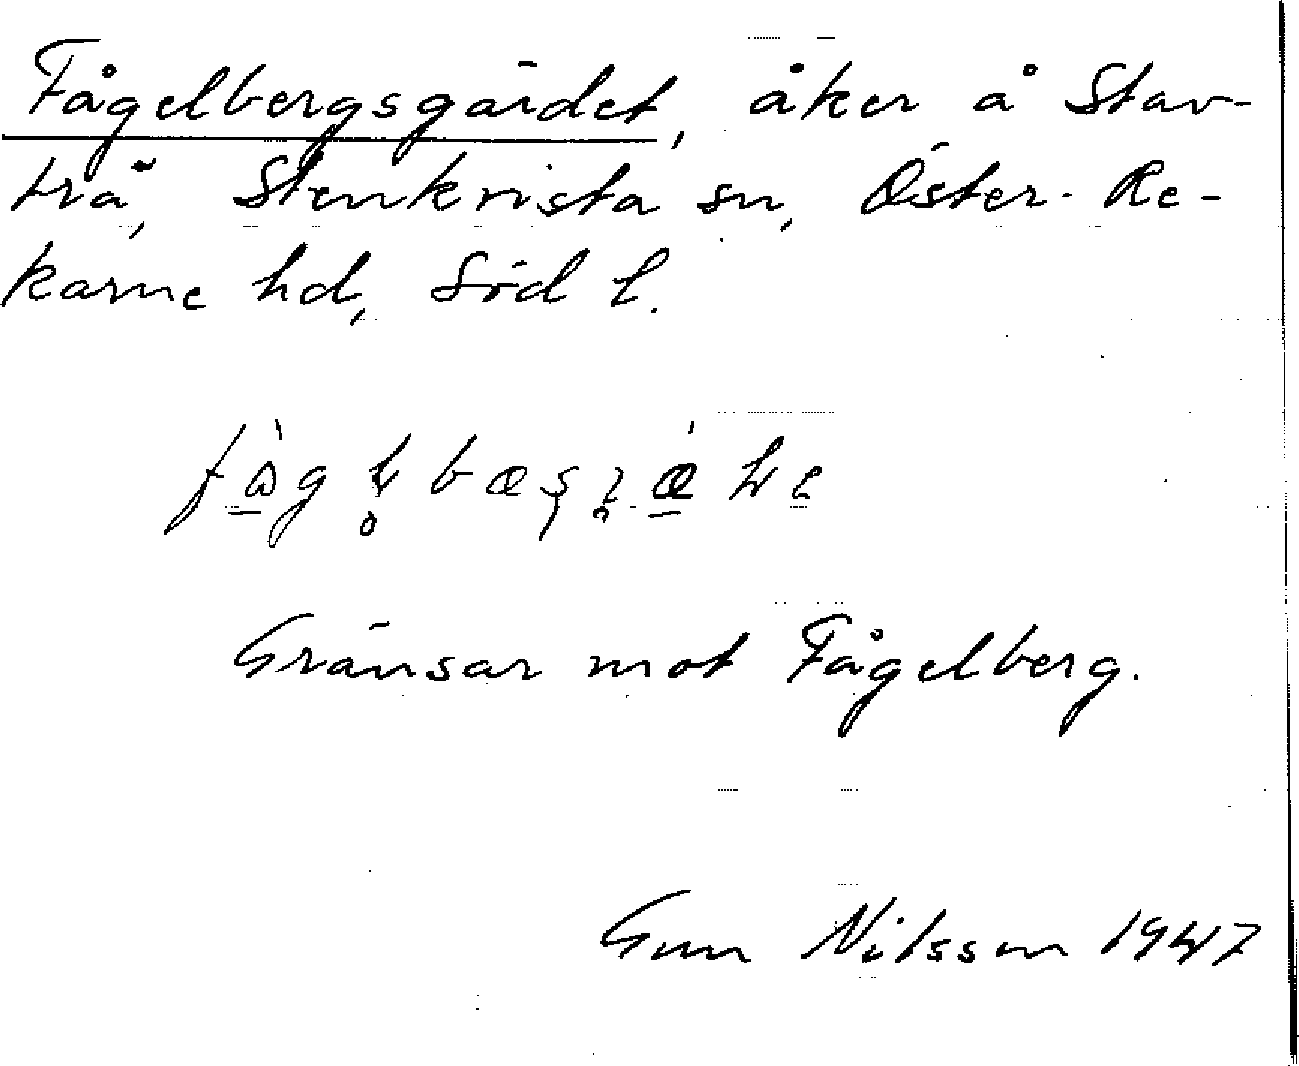 Fågelbergsgärdet, åker å Stav-
trä, Stenkvista sn, Öster-Re-
karne hd, Söd l.
Gränsar mot Fågelberg.
Gun Nilsson 1947